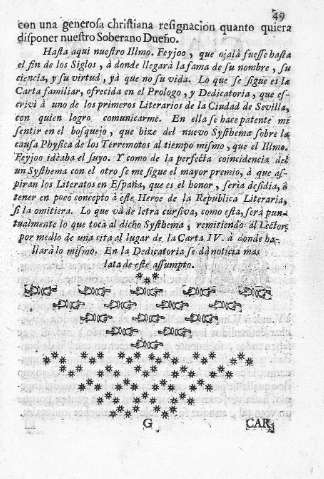 49
con una generosa christiana resignacion quanto quiera
disponer nuestro Soberano Dueño.
Hasta aqui nuestro Illmo. Feyjoo, que ojalá fuesse hasta
el fin de los Siglos, à donde llegarà la fama de su nombre, su
ciencia, y su virtud, yà que no su vida. Lo que se sigue es la
Carta familiar, ofrecida en el Prologo, y Dedicatoria, que es-
crivi à uno de los primeros Literarios de la Ciudad de Sevilla,
con quien logro comunicarme. En ella se hace patente mi
sentir en el bosquejo, que hize del nuevo Systhema sobre la
causa Physica de los Terremotos al tiempo mismo, que el Illmo.
Feyjoo ideaba el suyo. Y como de la perfecta coincidencia del
un Systhema con el otro se me sigue el mayor premio, à que as-
piran los Literatos en España, que es el honor, seria desidia, ò
tener en poco concepto à este Heroe de la Republica Literaria,
si la omitiera. Lo que và de letra cursiva, como esta, serà pun-
tualmente lo que toca al dicho Systhema, remitiendo al Lector,
por medio de una cita al lugar de la Carta IV. à donde ha-
llarà lo mismo. En la Dedicatoria se dà noticia mas
lata de este assumpto.
G CAR-